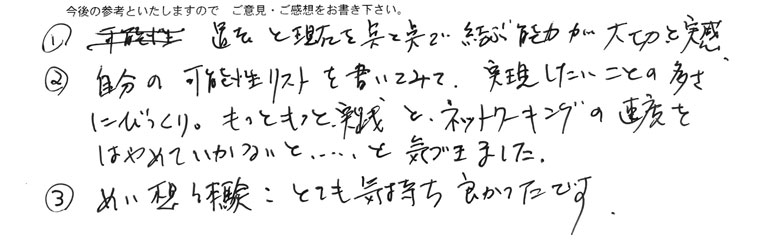 今後の参考といたしますので　ご意見・ご感想をお書き下さい。
① 可能性 過去と現在を点と点で結ぶ能力が大切と実感
② 自分の可能性リストを書いてみて、実現したいことの多さ
にびっくり。もっともっと実践と、ネットワーキングの速度を
はやめていかないと、……と気づきました。
③ めい想体験：とても気持ち良かったです.